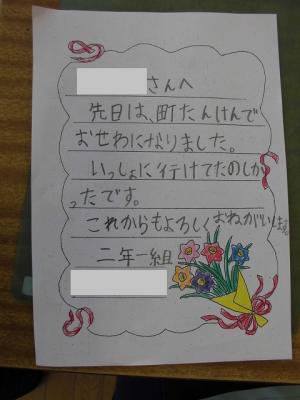 さんへ
先日は、町たんけんで
おせわになりました。
いっしょに行けてたのしか
ったです。
これからもよろしくおねがいします。
二年一組